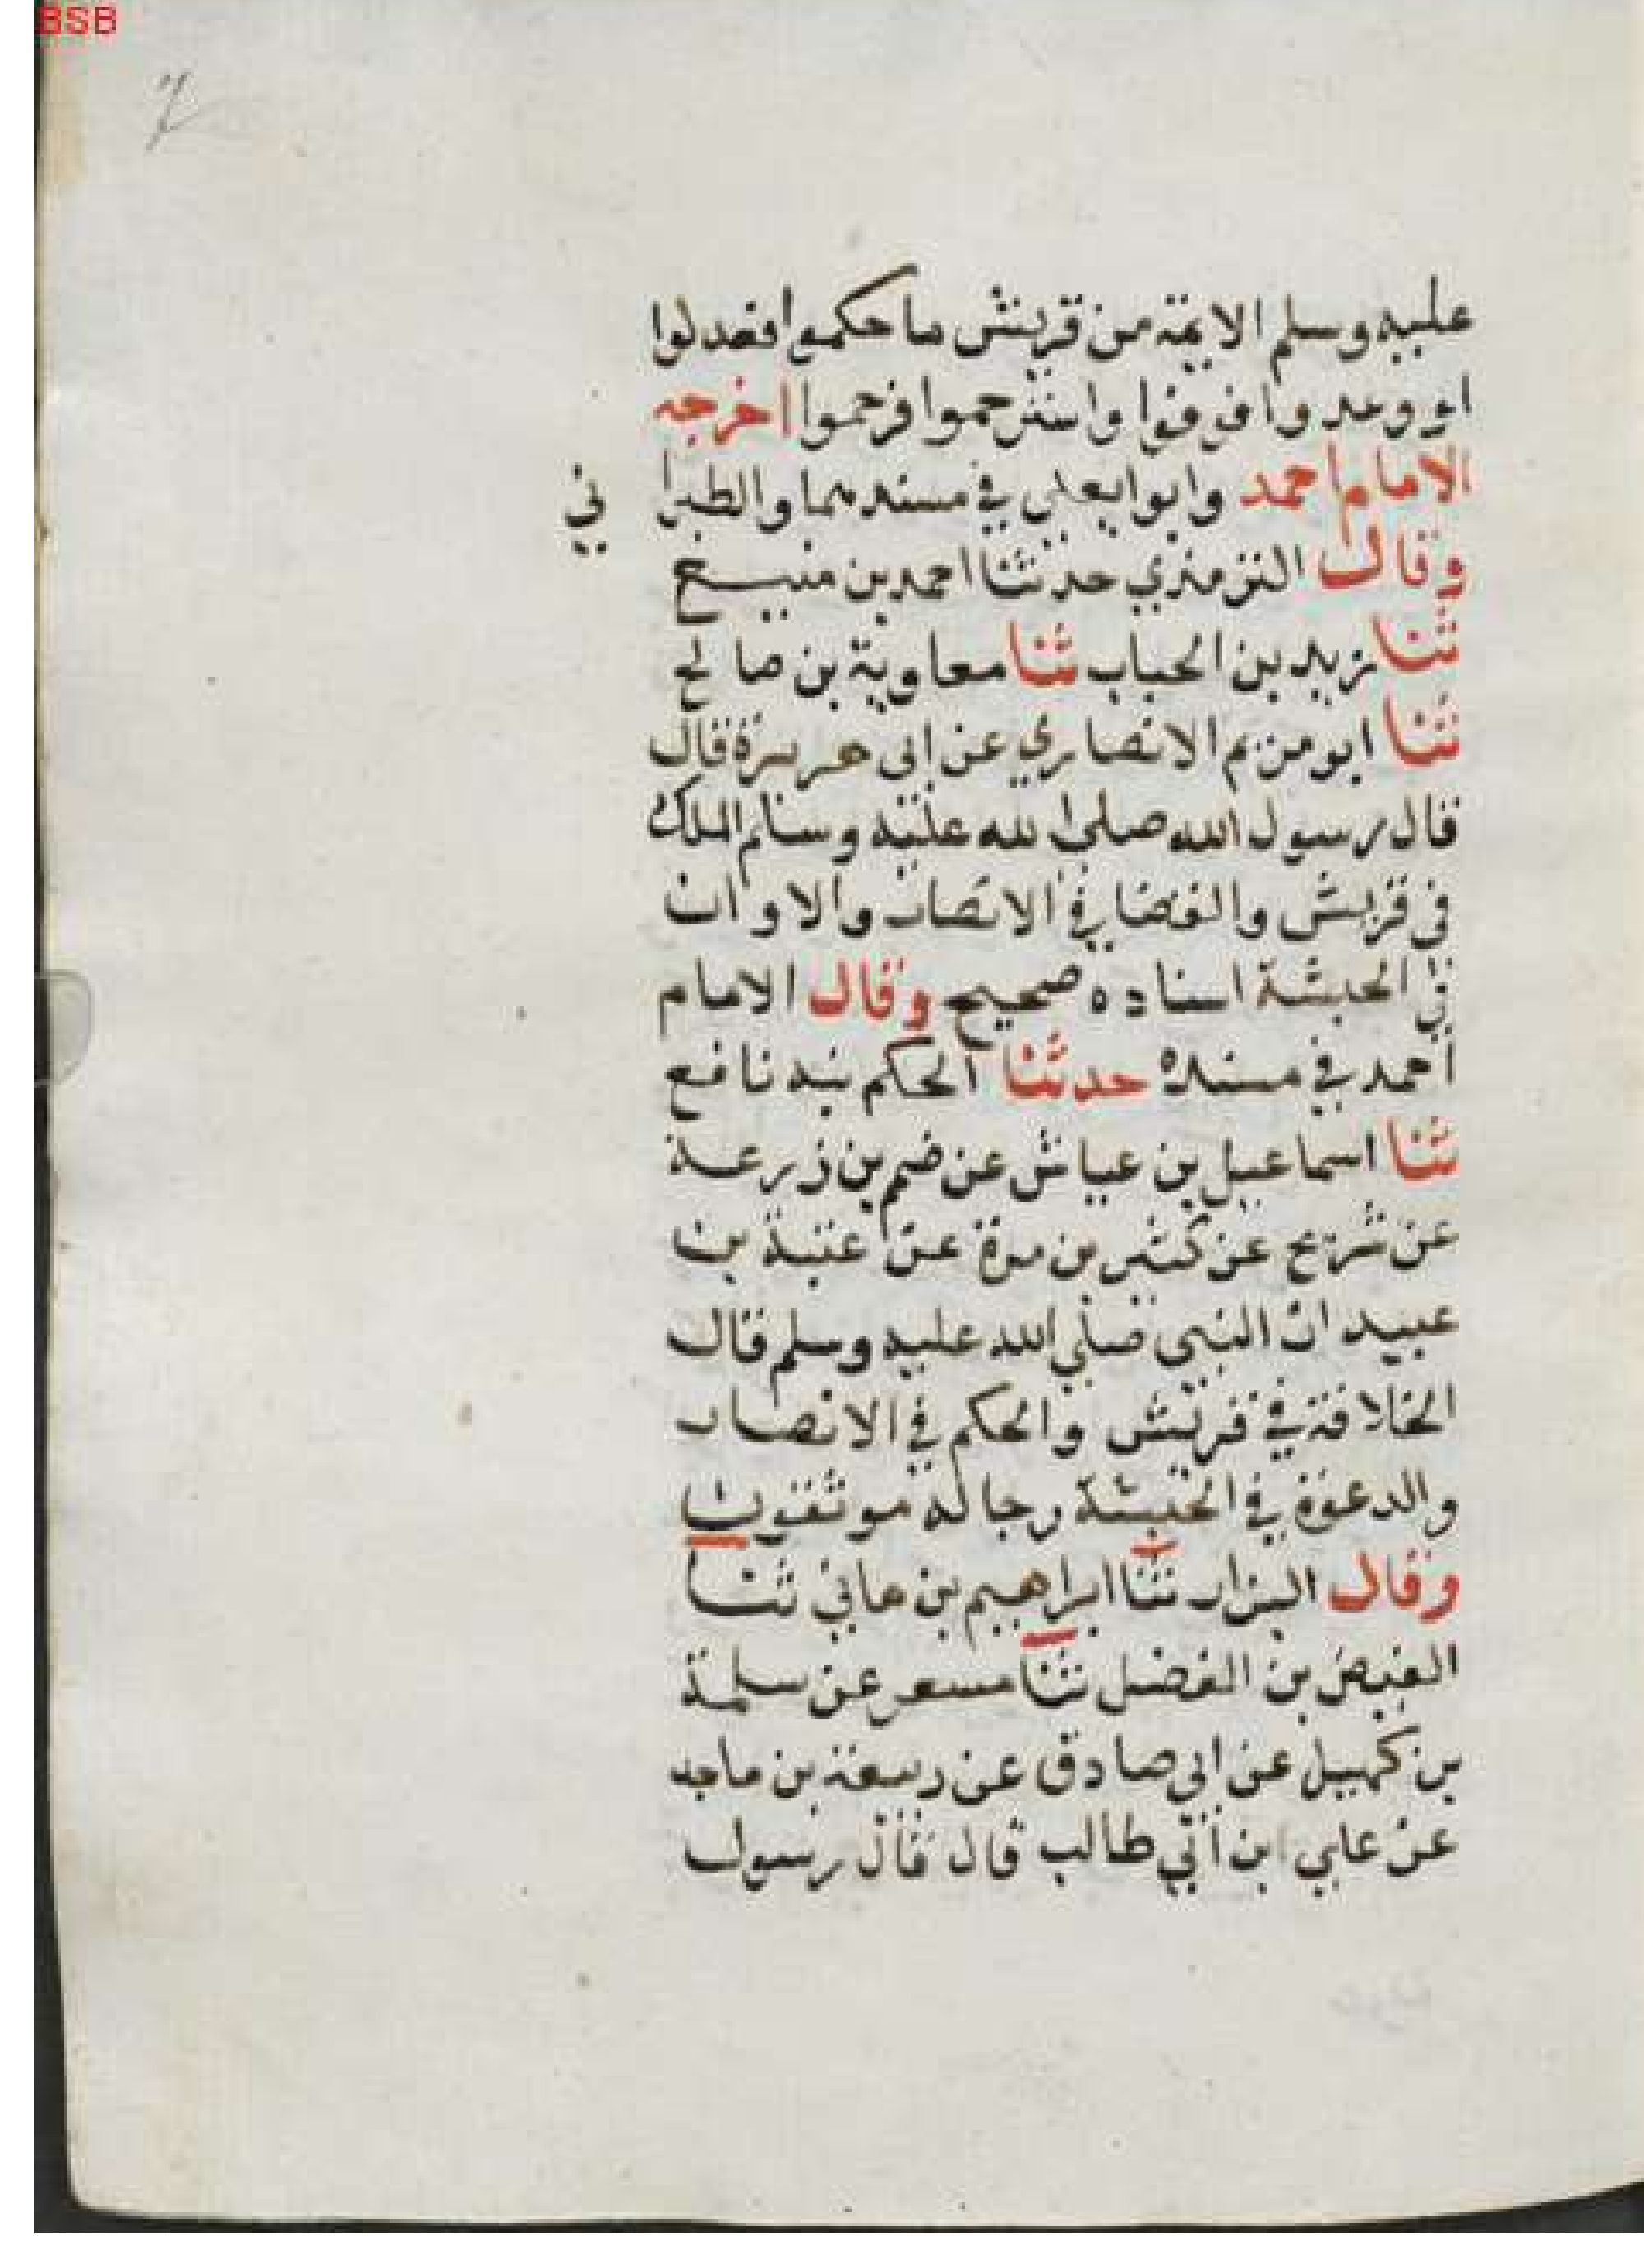 BSB
7
عليه وسلم الايمة من قريش ما حكموا فعدلوا
او وعدوا فوفوا واسترحموا فرحموا اخرجه
الامام احمد وابوا يعلي في مسنديهما والطبراني
وقال الترمذي حدثنا احمد بن منيع
ثنا زيد بن الحباب ثنا معاوية بن صالح
ثنا ابو مريم الانصاري عن ابي هريرة قال
قال رسول الله صلي الله عليه وسلم الملك
في قريش والقضا في الانصار والاوان
في الحبشة اسناده صحيح وقال الامام
أحمد في مسنده حدثنا الحكم بن نافع
ثنا اسماعيل بن عياش عن ضم بن زرعة
عن شريح عن كثير بن مرة عن عتبة بن
عبيد ان النبي صلي الله عليه وسلم قال
الخلافة في قريش والحكم في الانصار
والدعوة في الحبشة رجاله موثقون
وقال البزار ثنا ابراهيم بن هاني ثنا
الفيض بن الفضل ثنا مسعر عن سلمة
بن كهيل عن ابي صادق عن ربيعة بن ماجد
عن علي ابن أبي طالب قال قال رسول